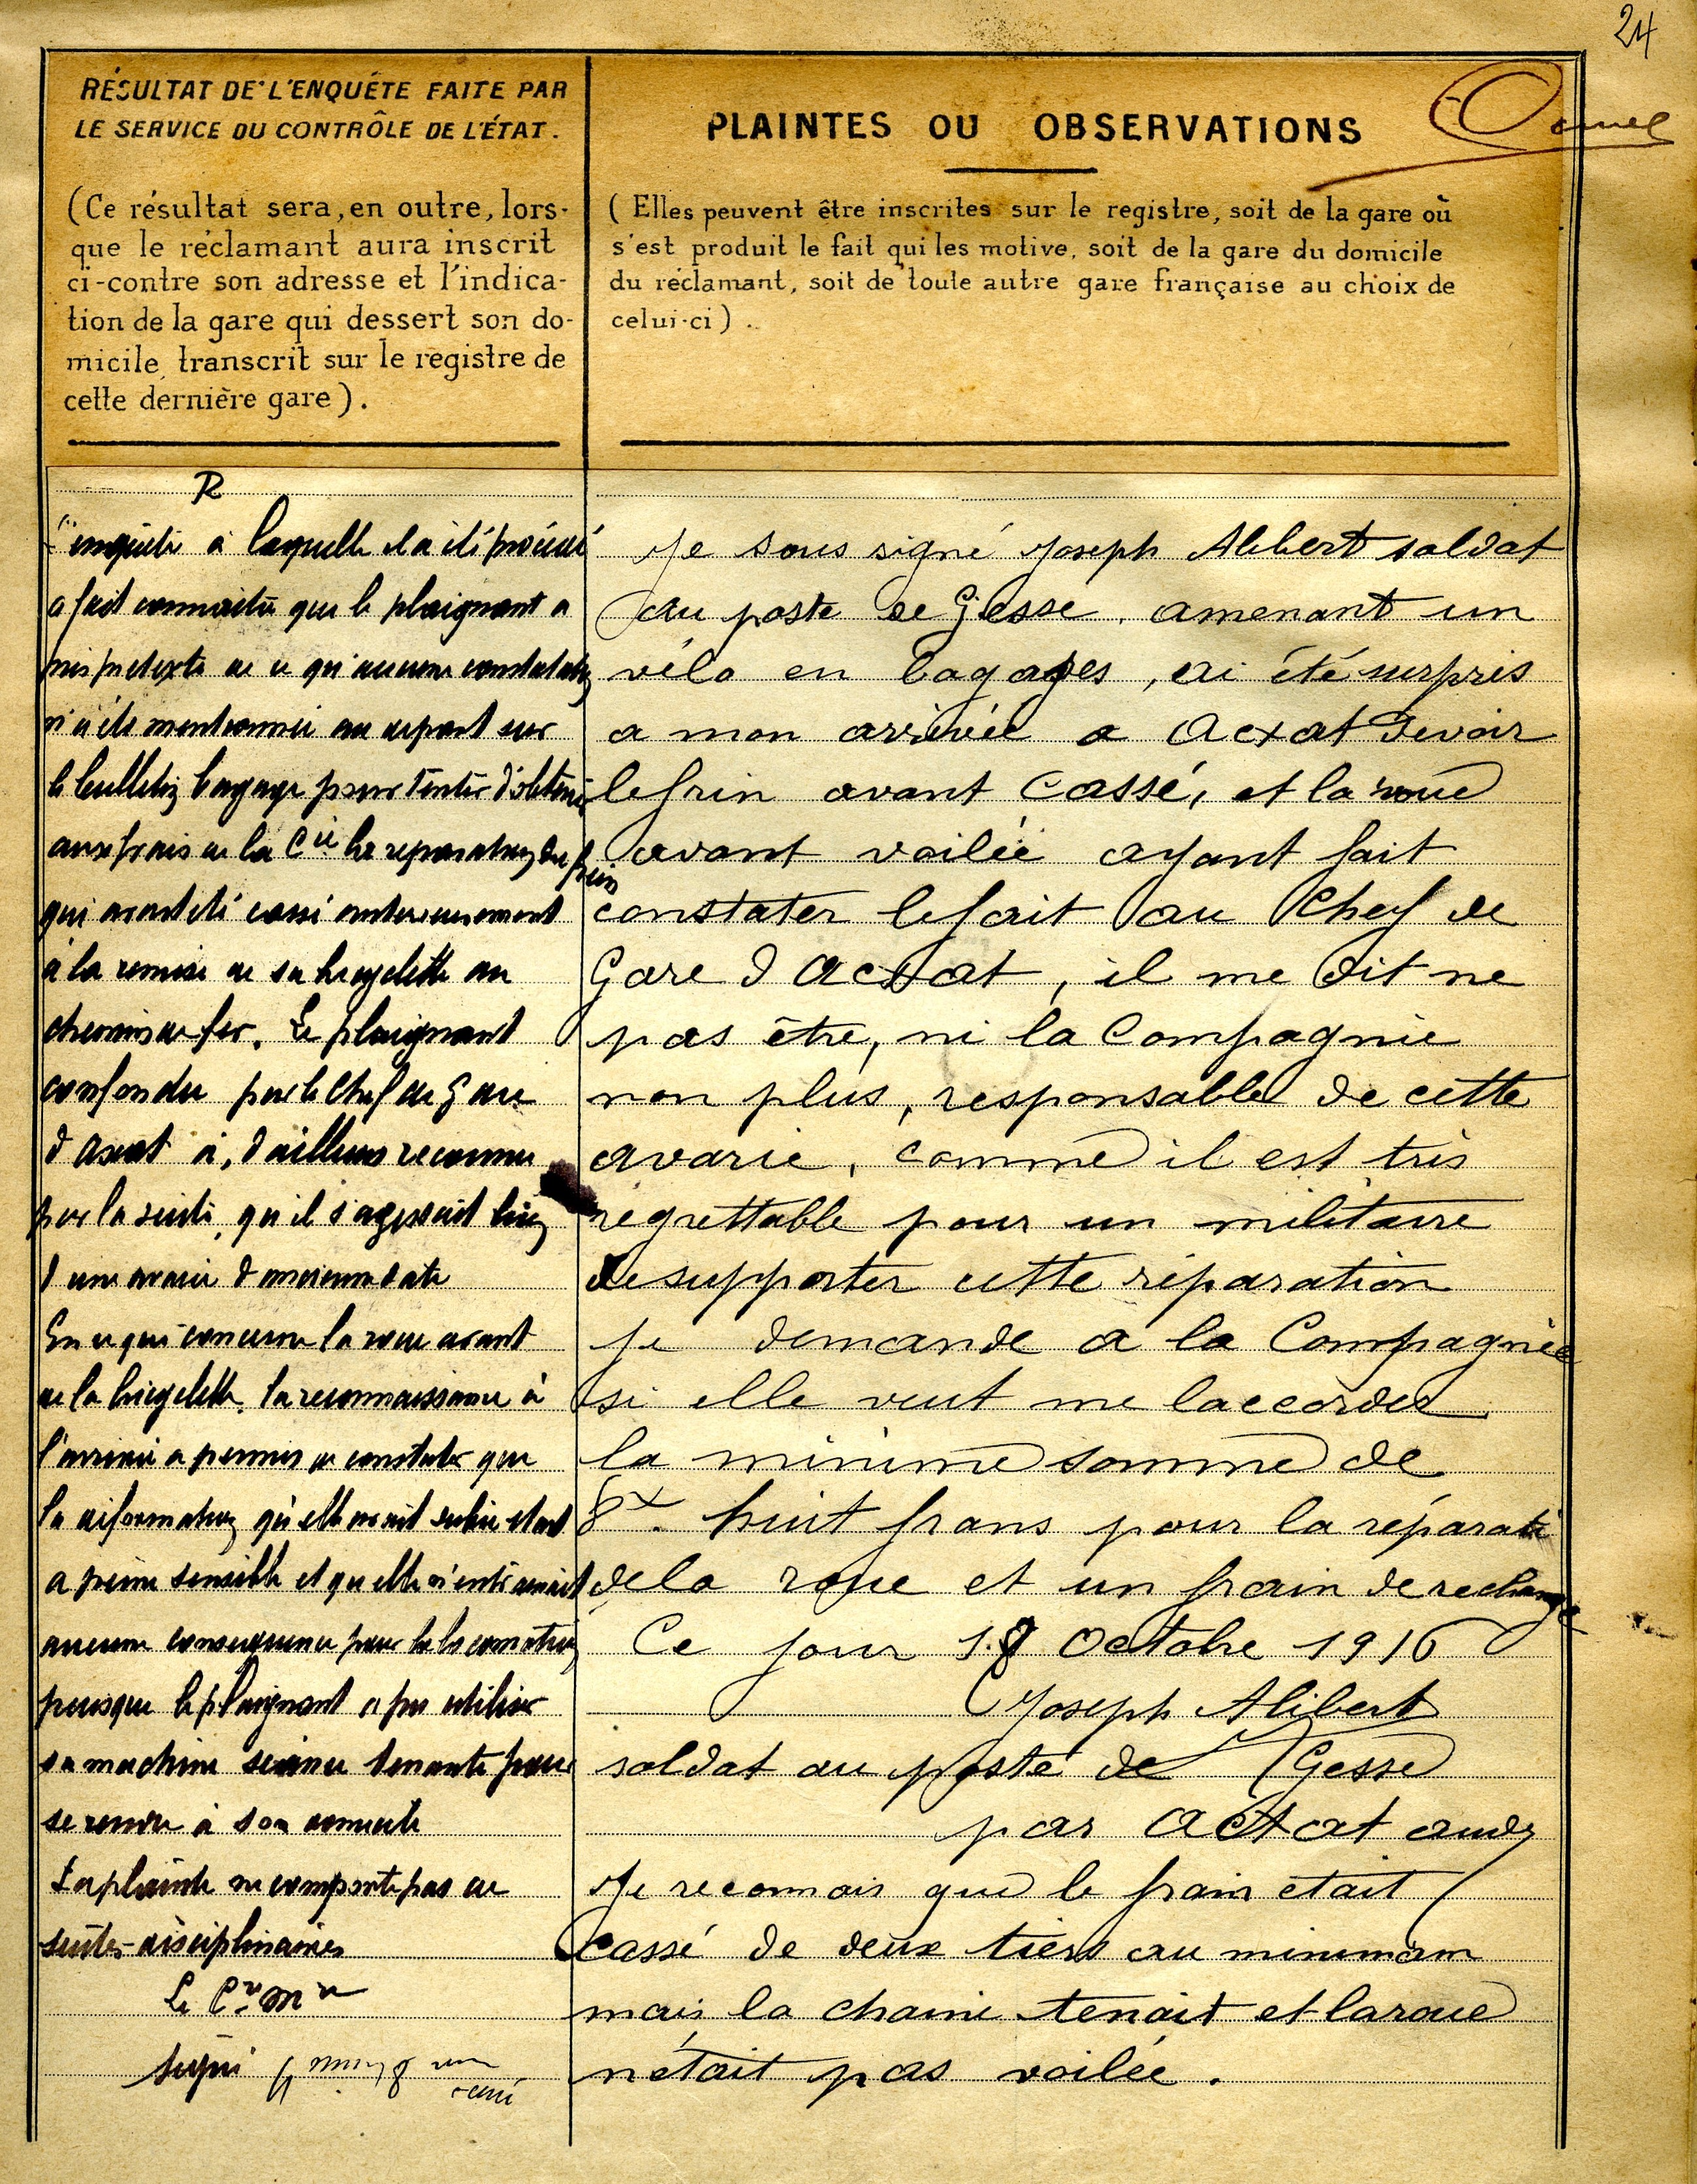 24
RÉSULTAT DE L'ENQUÊTE FAITE PAR
LE SERVICE DU CONTRÔLE DE L'ÉTAT.
(Ce résultat sera, en outre, lors-
que le réclamant aura inscrit
ci-contre son adresse et l'indica-
tion de la gare qui dessert son do-
micile, transcrit sur le registre de
cette dernière gare).
R
L'enquête à laquelle il a été procédé
a fait connaître que le plaignant a
pris pretexte de ce qu'aucune constatation
n'a été mentionnée au départ sur
le bulletin bagage pour tenter d'obtenir
aux frais de la Cie la reparation du frein
qui avait été cassé anterieurement
à la remise de sa bicyclette au
chemin de fer. Le plaignant
confondu par le Chef de Gare
d'axat a, d'ailleurs reconnu
par la suite, qu'il s'agissait bien
d'une avarie d'ancienne date
En ce qui concerne la roue avant
de la bicyclette, la reconnaissance à
l'arrivée a permis de constater que
la déformation qu'elle avait subie etait
a peine sensible et qu'elle n'entrainait
aucune consequence pour la locomotion
puisque le plaignant a pu utiliser
sa machine séance tenante pour
se rendre à son domicile
La plainte ne comporte pas de
suites disciplinaires
Le
Signé
PLAINTES OU OBSERVATIONS
(Elles peuvent être inscrites sur le registre, soit de la gare où
s'est produit le fait qui les motive, soit de la gare du domicile
du réclamant, soit de toute autre gare française au choix de
celui-ci).
Je sous signé Joseph Alibert soldat
au poste de Gesse. amenant un
vélo en bagages, ai été surpris
a mon arrivée a Acxat de voir
le frin avant cassé, et la roue
avant voilée ayant fait
constater le fait au Chef de
Gare d Acxat, il me dit ne
pas être, ni la Compagnie
non plus, responsable de cette
avarie, comme il est très
regrettable pour un militaire
de supporter cette réparation
je demande a la Compagnie
si elle veut me laccorder
la minime somme de
8x. huit frans pour la réparati
de la roue et un frain de rechange
Ce jour 18 Octobre 1916
Joseph Alibert
soldat au poste de Gesse
par Acxat aude
Je reconnais que le frain etait
cassé de deux tiers au minimam
mais la chaine tenait et la roue
n'était pas voilée.